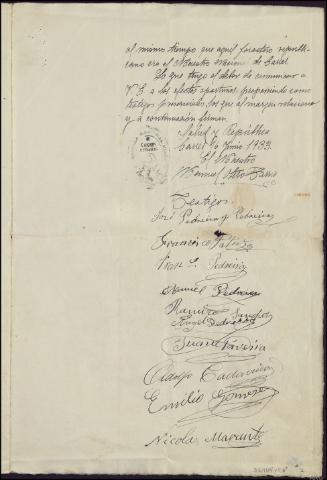 al mismo tiempo que aquel forastero republi-
cano era el Maestro Nacional de
Lo que tengo el deber de comunicar a
V. E. a los efectos oportunos, proponiendo como
testigos presenciales, los que al margen relaciono
y a continuación firman.
Salud y República
Junio 1933.
El Maestro
Manuel Otero
Testigos:
José Pedreira y Pedreira
Francisco
Juan L. Pedreira
Manuel Pedreira
Ramiro Sanchez
Angel Pedreira
Juan Taveira
Emilio Gomez
Nicolas